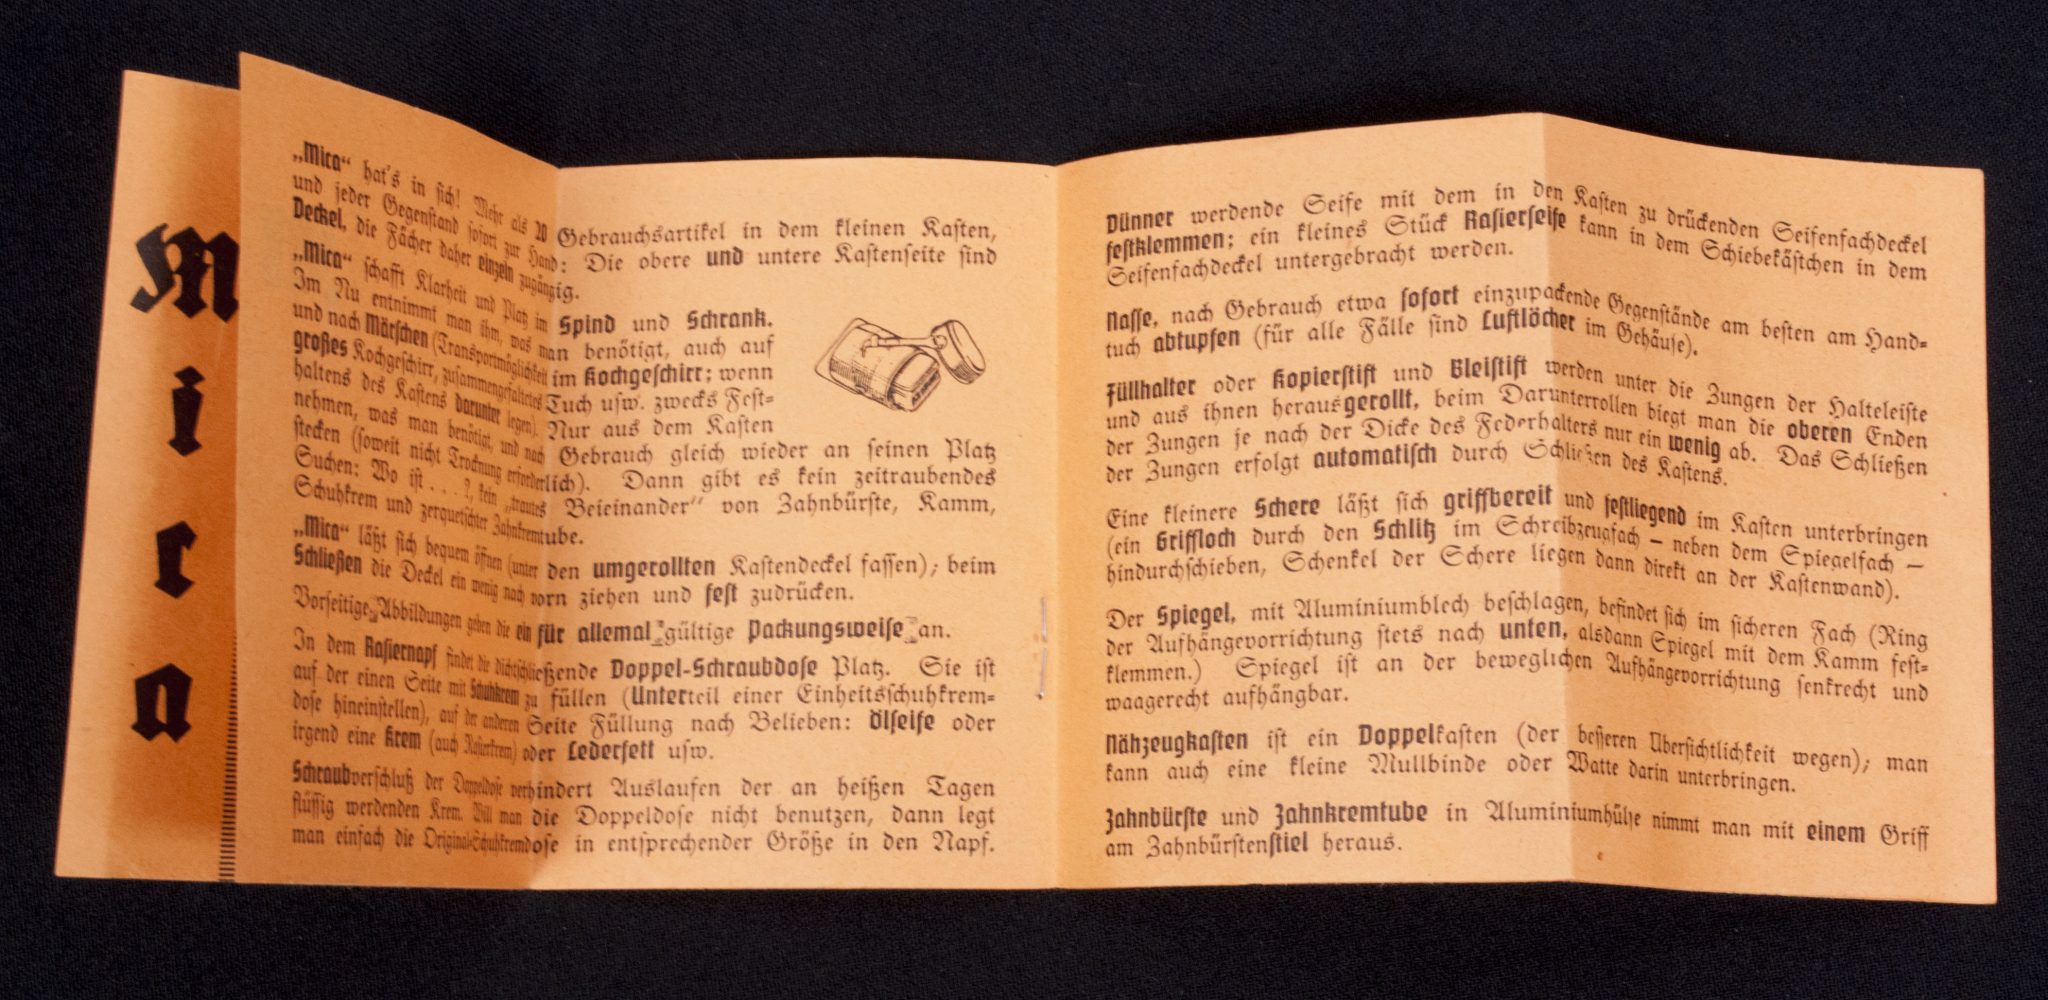 Mica
„Mica“ hat's in sich! Mehr als 20 Gebrauchsartikel in dem kleinen Kasten,
und jeder Gegenstand sofort zur Hand: Die obere und untere Kastenseite sind
Deckel, die Fächer daher einzeln zugängig.
„Mica“ schafft Klarheit und Platz im Spind und Schrank.
Im Nu entnimmt man ihm, was man benötigt, auch auf
und nach Märschen (Transportmöglichkeit im Kochgeschirr; wenn
großes Kochgeschirr, zusammengefaltetes Tuch usw. zwecks Fest-
haltens des Kastens darunter legen). Nur aus dem Kasten
nehmen, was man benötigt, und nach Gebrauch gleich wieder an seinen Platz
stecken (soweit nicht Trocknung erforderlich). Dann gibt es kein zeitraubendes
Suchen: Wo ist . . . ?, kein „trautes Beieinander“ von Zahnbürste, Kamm,
Schuhkrem und zerquetschter Zahnkremtube.
„Mica“ läßt sich bequem öffnen (unter den umgerollten Kastendeckel fassen); beim
Schließen die Deckel ein wenig nach vorn ziehen und fest zudrücken.
Vorseitige Abbildungen geben die ein für allemal gültige Packungsweise an.
In dem Rasiernapf findet die dichtschließende Doppel-Schraubdose Platz. Sie ist
auf der einen Seite mit Schuhkrem zu füllen (Unterteil einer Einheitsschuhkrem-
dose hineinstellen), auf der anderen Seite Füllung nach Belieben: Ölseife oder
irgend eine Krem (auch Rasierkrem) oder Lederfett usw.
Schraubverschluß der Doppeldose verhindert Auslaufen der an heißen Tagen
flüssig werdenden Krem. Will man die Doppeldose nicht benutzen, dann legt
man einfach die Original-Schuhkremdose in entsprechender Größe in den Napf.
Dünner werdende Seife mit dem in den Kasten zu drückenden Seifenfachdeckel
festklemmen; ein kleines Stück Rasierseife kann in dem Schiebekästchen in dem
Seifenfachdeckel untergebracht werden.
Nasse, nach Gebrauch etwa sofort einzupackende Gegenstände am besten am Hand-
tuch abtupfen (für alle Fälle sind Luftlöcher im Gehäuse).
Füllhalter oder Kopierstift und Bleistift werden unter die Zungen der Halteleiste
und aus ihnen herausgerollt, beim Darunterrollen biegt man die oberen Enden
der Zungen je nach der Dicke des Federhalters nur ein wenig ab. Das Schließen
der Zungen erfolgt automatisch durch Schließen des Kastens.
Eine kleinere Schere läßt sich griffbereit und festliegend im Kasten unterbringen
(ein Griffloch durch den Schlitz im Schreibzeugfach – neben dem Spiegelfach –
hindurchschieben, Schenkel der Schere liegen dann direkt an der Kastenwand).
Der Spiegel, mit Aluminiumblech beschlagen, befindet sich im sicheren Fach (Ring
der Aufhängevorrichtung stets nach unten, alsdann Spiegel mit dem Kamm fest-
klemmen.) Spiegel ist an der beweglichen Aufhängevorrichtung senkrecht und
waagerecht aufhängbar.
Nähzeugkasten ist ein Doppelkasten (der besseren Übersichtlichkeit wegen); man
kann auch eine kleine Mullbinde oder Watte darin unterbringen.
Zahnbürste und Zahnkremtube in Aluminiumhülse nimmt man mit einem Griff
am Zahnbürstenstiel heraus.